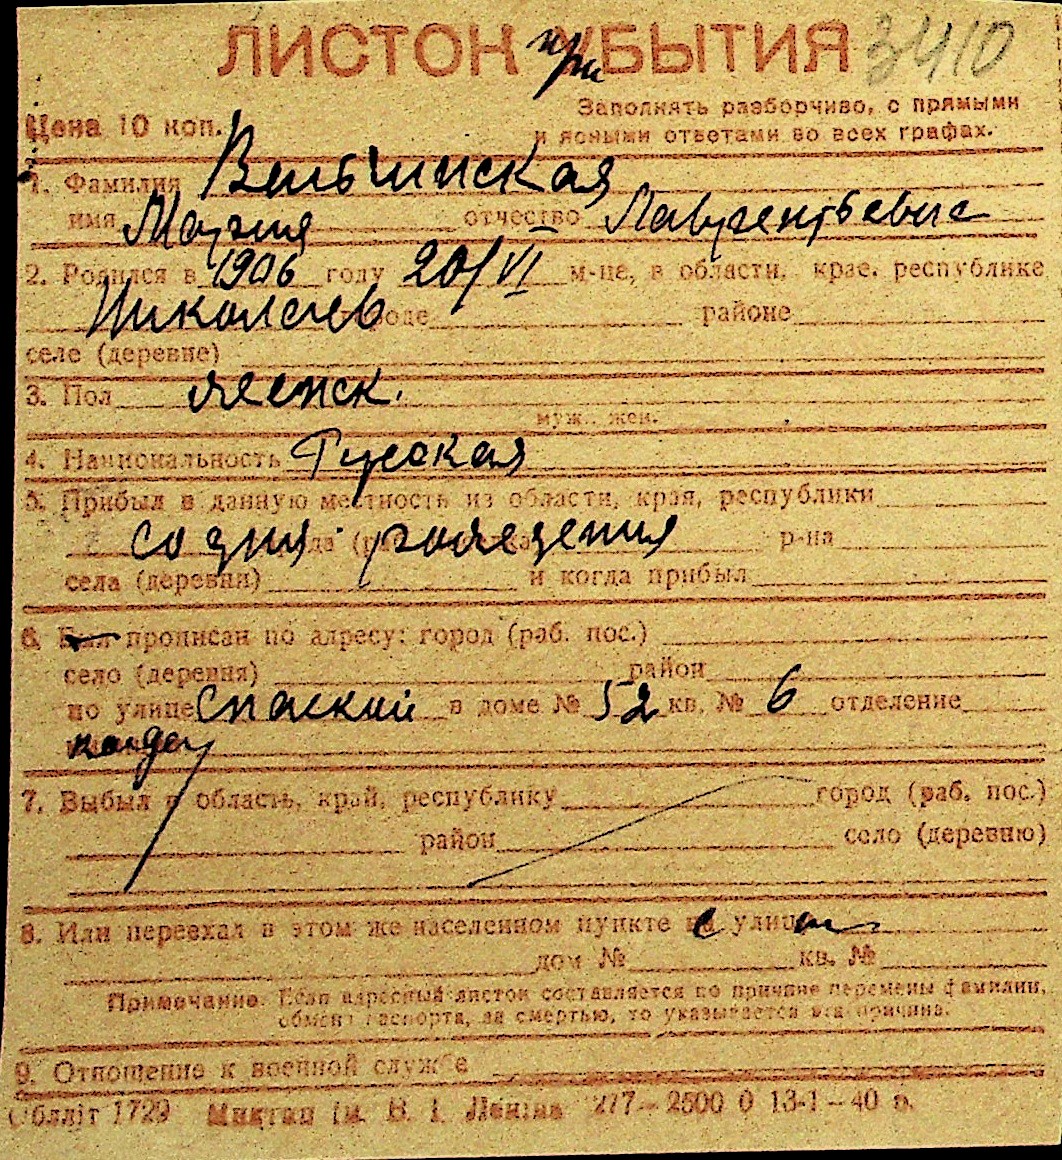 ЛИСТОК при УБЫТИЯ 3410
Цена 10 коп.
Заполнять разборчиво, с прямыми
и ясными ответами во всех графах.
1. Фамилия
имя Мария отчество Лаврентьевна
2. Родился в 1906 году 20/VI м-це, в области, крае, республике
Николаев городе районе
селе (деревне)
3. Пол женск.
муж., жен.
4. Национальность Русская
5. Прибыл в данную местность из области, края, республики
со дня рождения р-на
села (деревни) и когда прибыл
6. Был прописан по адресу: город (раб. пос.)
село (деревня) район
по улице Спаский в доме № 52 кв. № 6 отделение
7. Выбыл в область, край, республику город (раб. пос.)
район село (деревню)
8. Или переехал в этом же населенном пункте на улицу
дом № кв. №
Примечание. Если адресный листок составляется по причине перемены фамилии,
обмена паспорта, за смертью, то указывается эта причина.
9. Отношение к военной службе
Облліт 1729 Миктип ім. В. І. Леніна 277—2500 0 13-1—40 р.